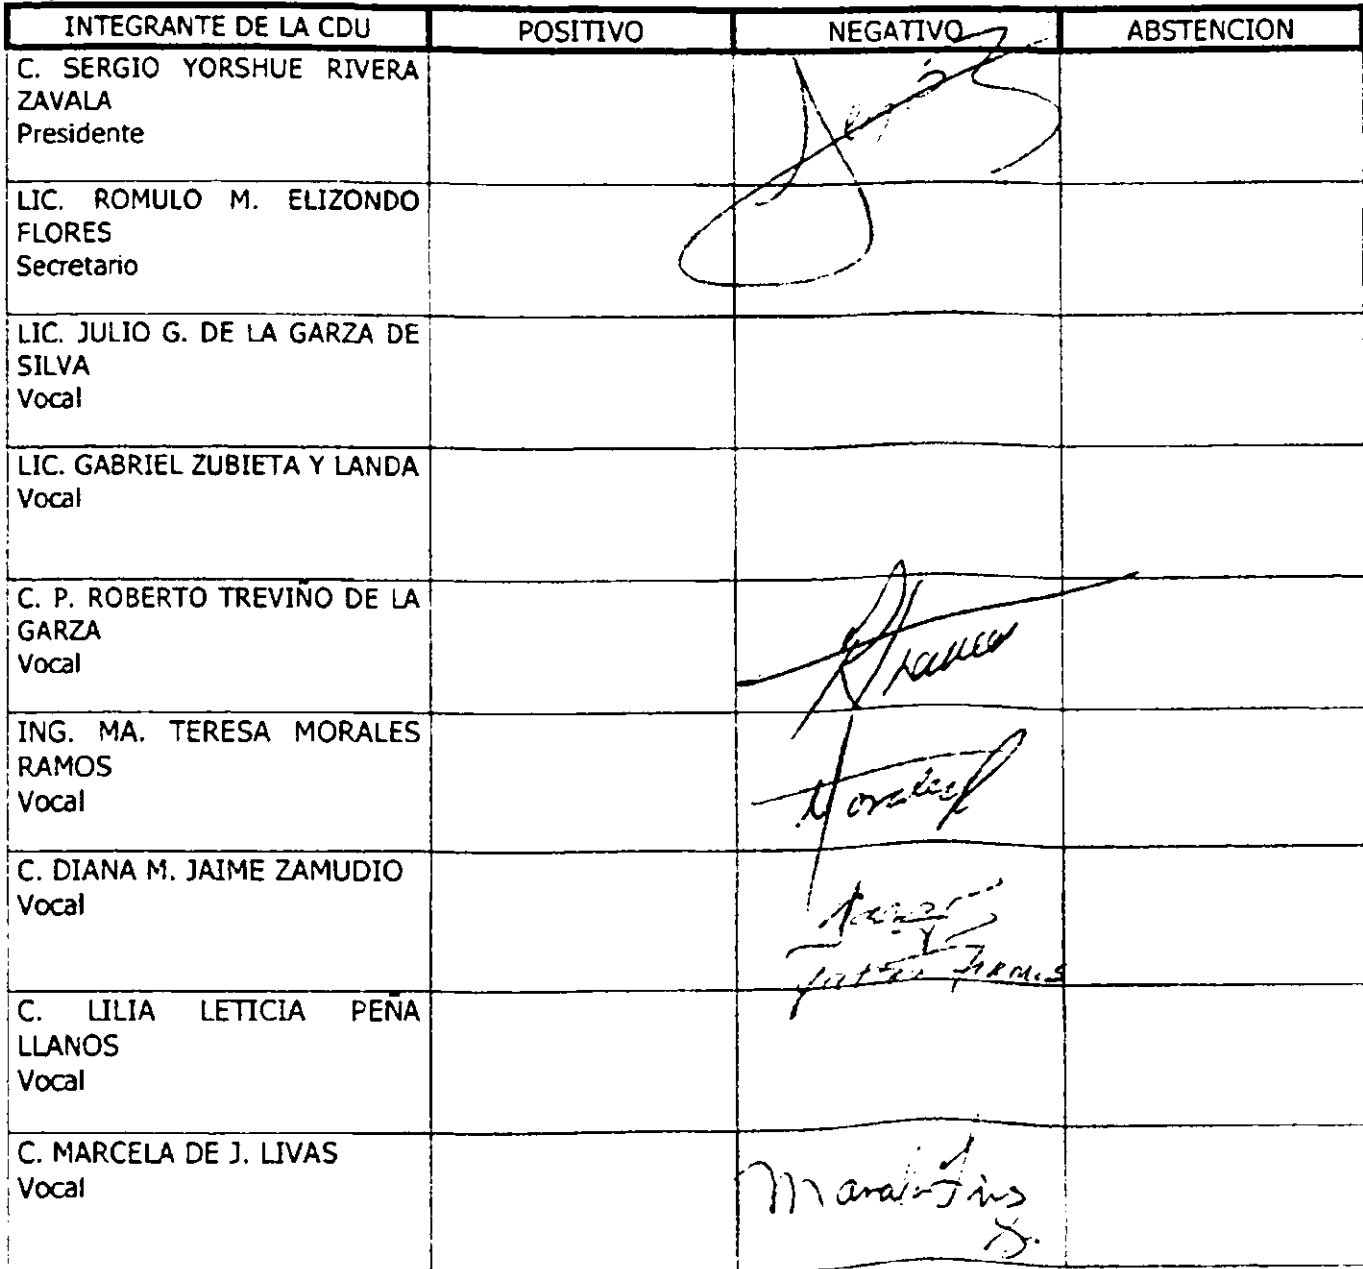 INTEGRANTE DE LA CDU POSITIVO NEGATIVO ABSTENCION
C. SERGIO YORSHUE RIVERA
ZAVALA
Presidente
LIC. ROMULO M. ELIZONDO
FLORES
Secretario
LIC. JULIO G. DE LA GARZA DE
SILVA
Vocal
LIC. GABRIEL ZUBIETA Y LANDA
Vocal
C. P. ROBERTO TREVIÑO DE LA
GARZA
Vocal
ING. MA. TERESA MORALES
RAMOS
Vocal
C. DIANA M. JAIME ZAMUDIO
Vocal
C. LILIA LETICIA PEÑA
LLANOS
Vocal
C. MARCELA DE J. LIVAS
Vocal